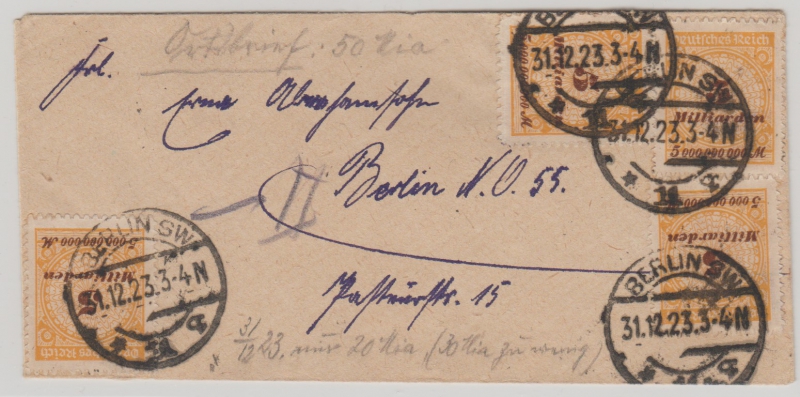 Ortsbrief: 50 Mia
Frl.
Erna Abrahamsohn
Berlin N.O. 55.
II
Pasteurstr. 15
31/12 23. nur 20 Mia, (30 Mia zu wenig)
BERLIN SW
31.12.23.3-4N
* 11 b
BERLIN SW
31.12.23.3-4N
* 11 b
BERLIN SW
31.12.23.3-4N
BERLIN SW
31.12.23.3-4N
Deutsches Reich
5
Milliarden
5000000000 M
5000000000
Milliarden
5
5000000000 M
Milliarden
5